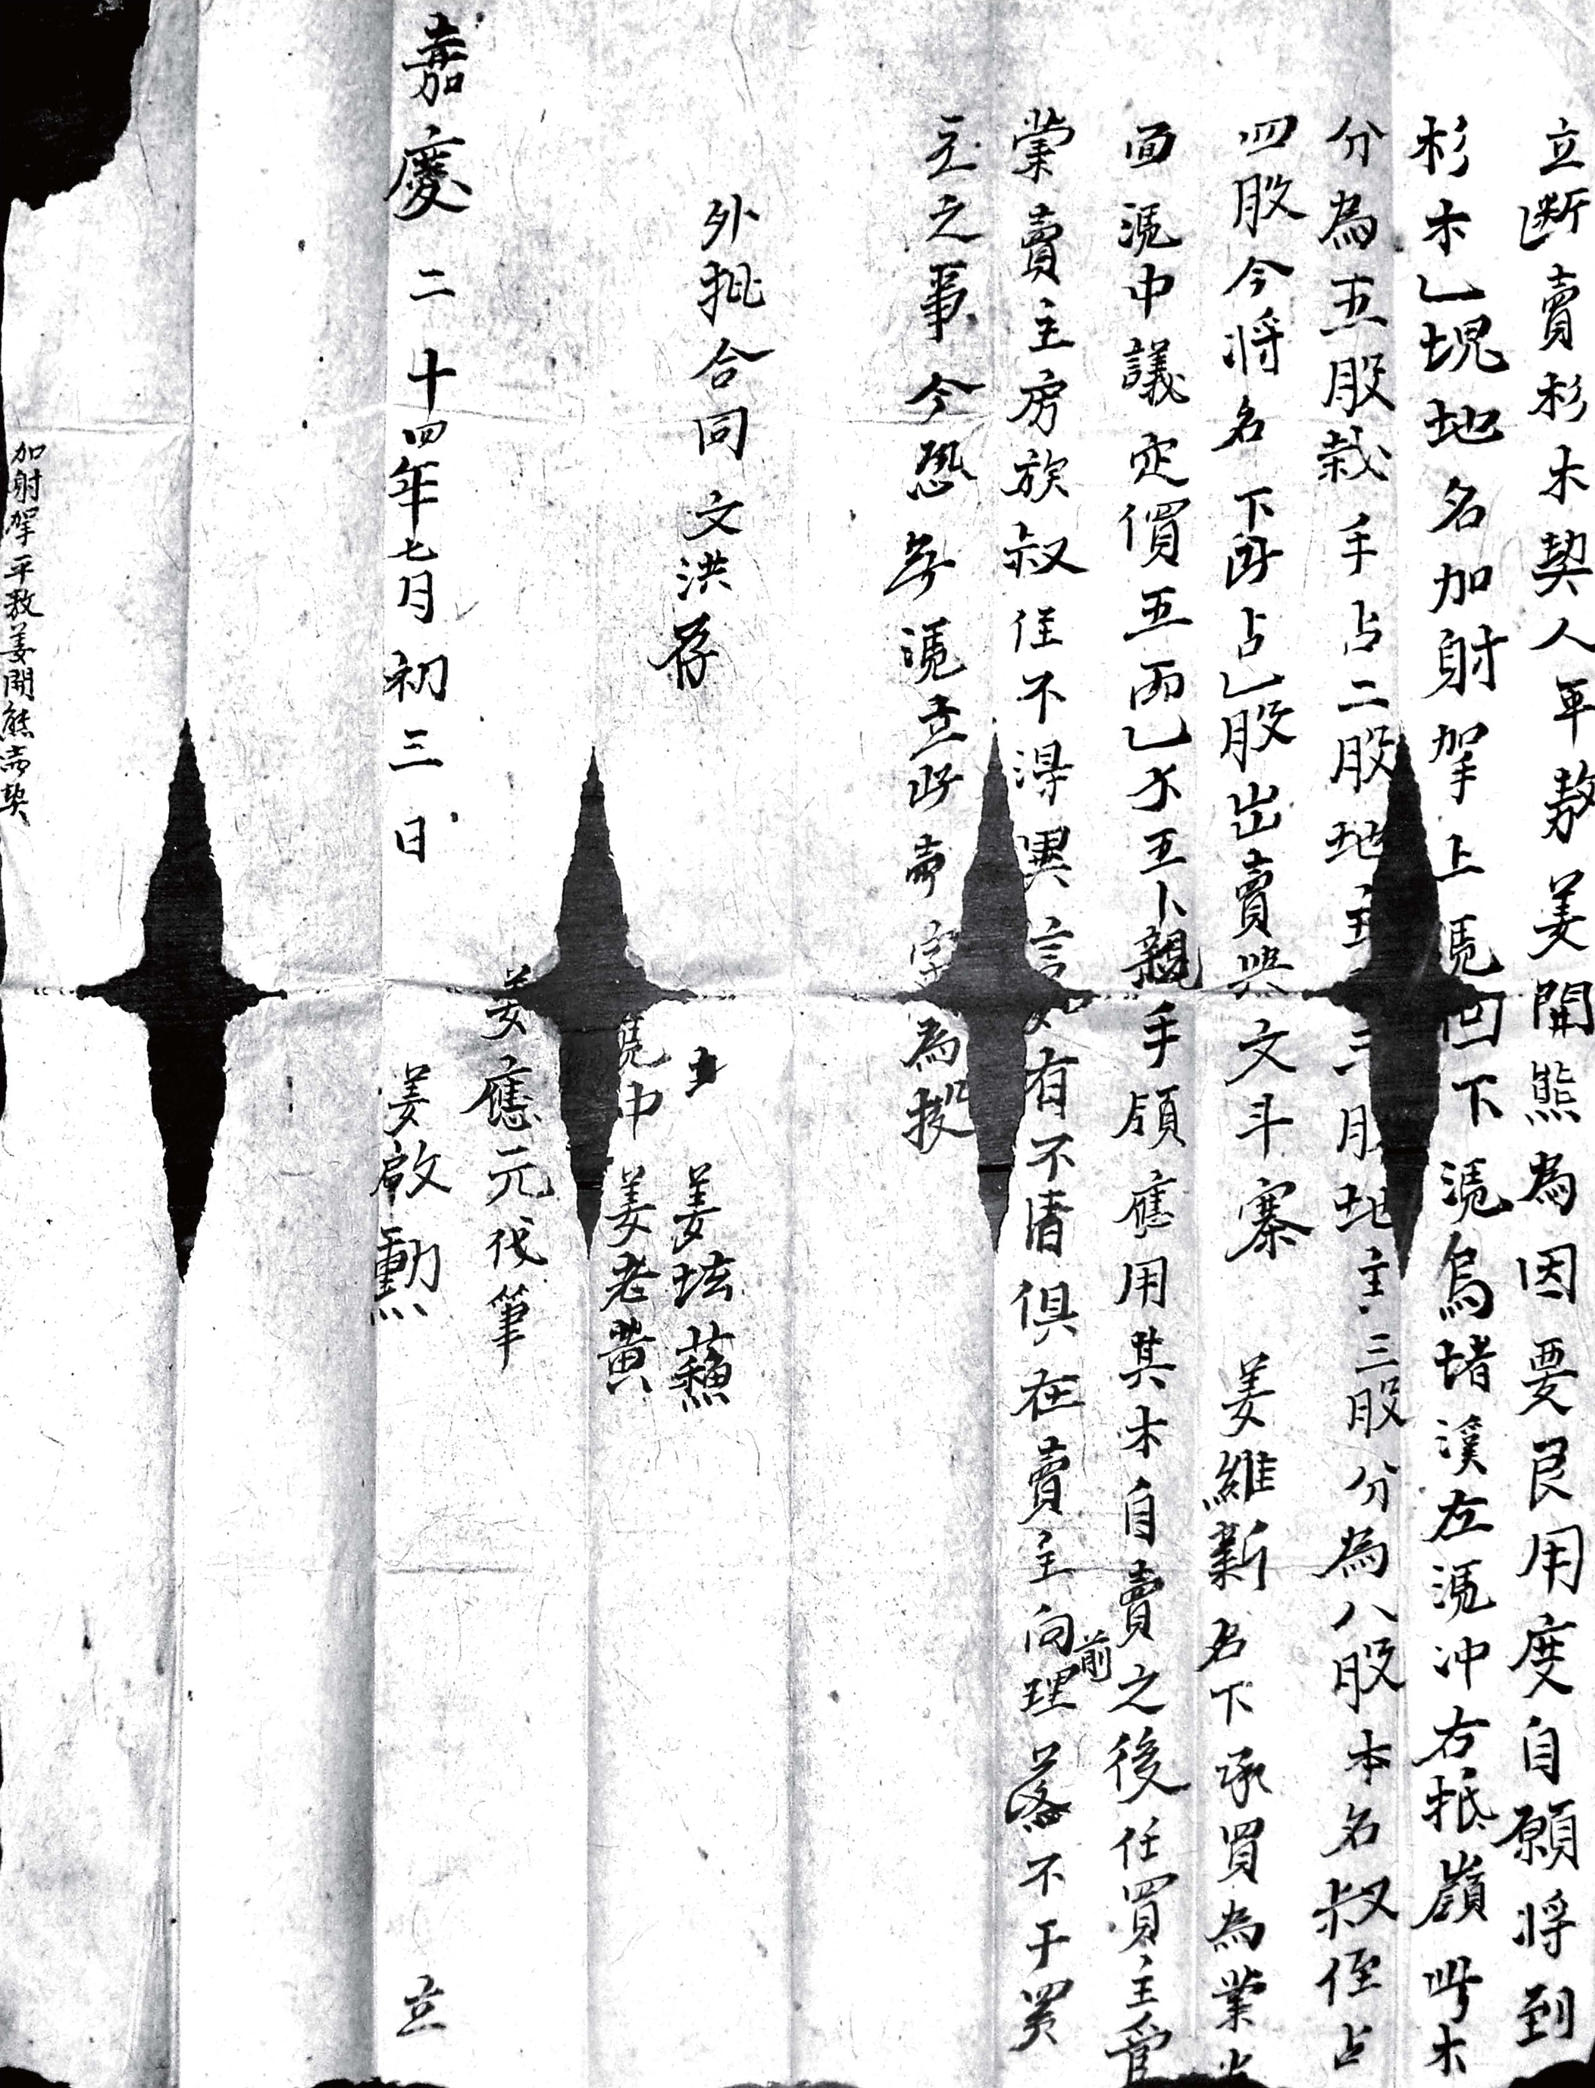 立斷賣杉木契人平敖姜開熊為因要艮用度自願將到
杉木乚塊地名加射𢫦上凴田下凴烏堵溪左凴冲右抵嶺此木
分為五股栽手占二股地主三股地主三股分為八股本名叔侄占
四股今将名下所占乚股出賣與文斗寨姜維新名下承買為業當
面凴中議定價五両乚才五卜親手領應用其木自賣之後任買主管
業賣主房族叔侄不得異言如有不清俱在賣主向前理落不干買
主之事今恐無凴立此賣字為拠
外批合同文洪存
姜垅蘓
凴中姜老黄
姜應元代筆
嘉慶二十四年七月初三日姜啟勳立
加射𢫦平敖姜開熊賣契